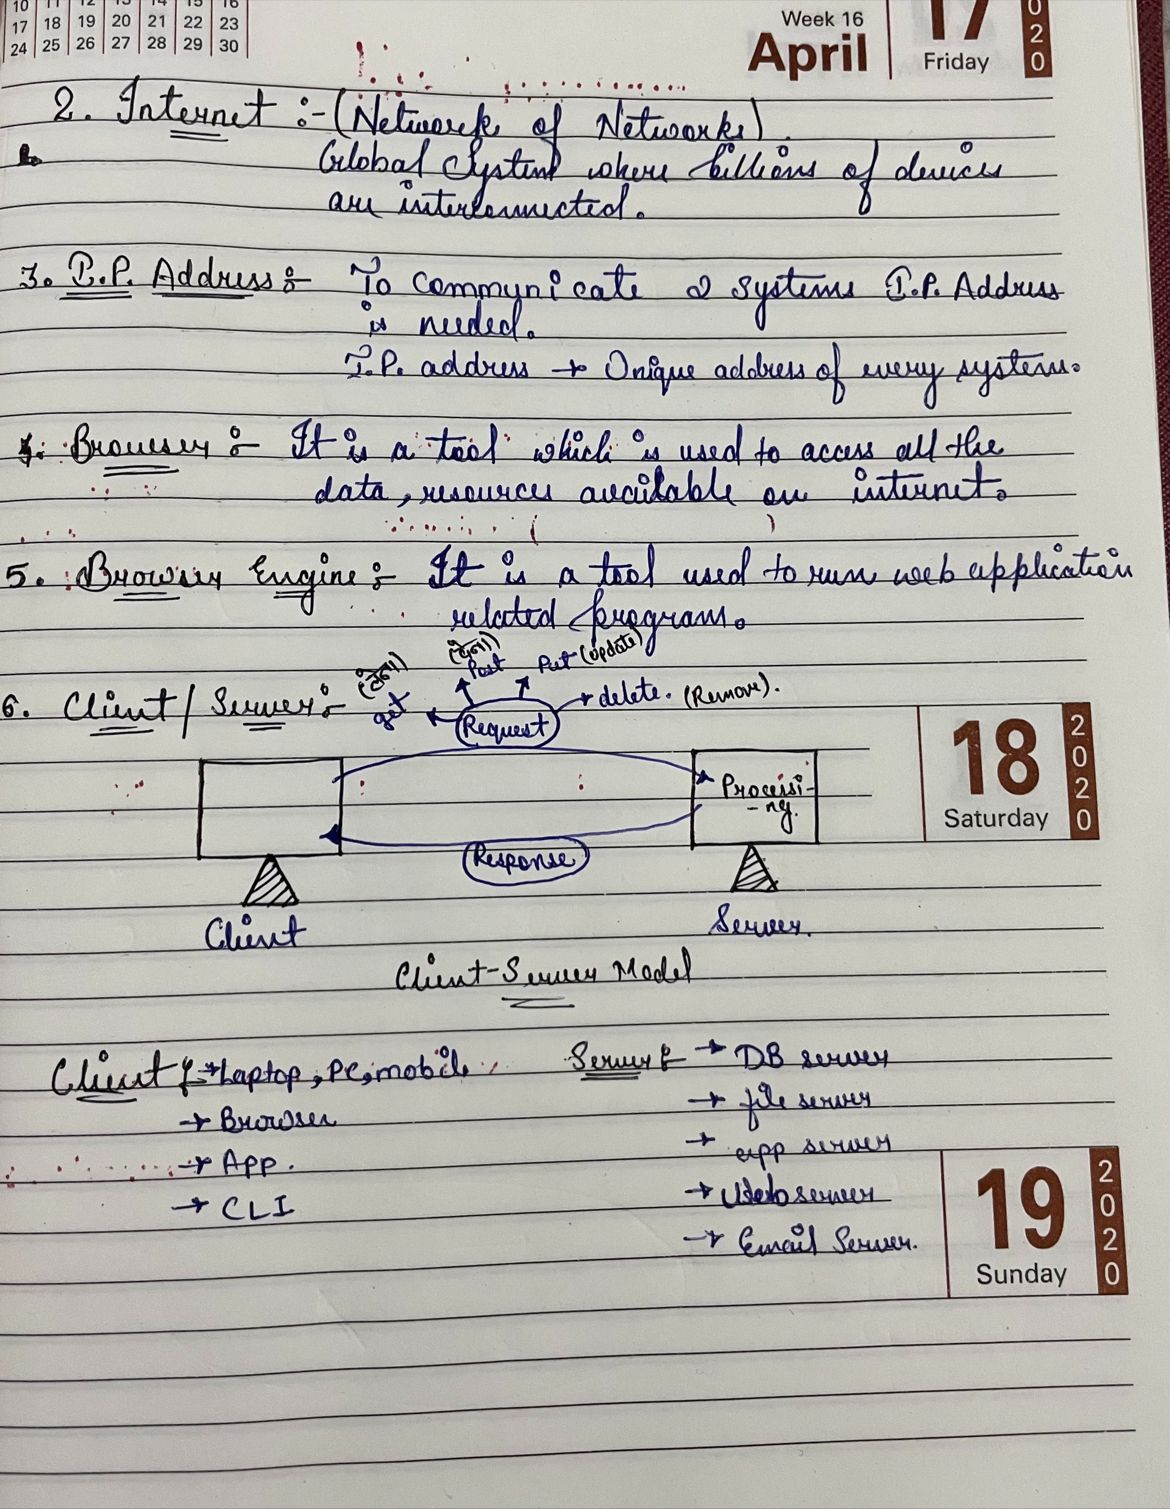 10 11 12 13 14 15 16
17 18 19 20 21 22 23
24 25 26 27 28 29 30
Week 16
April
17
Friday
2020
2. Internet :- (Network of Networks).
Global System where billions of devices
are interconnected.
3. I.P. Address :- To communicate 2 systems I.P. Address
is needed.
I.P. address → Unique address of every system.
4. Browser :- It is a tool which is used to access all the
data, resources available on internet.
5. Browser Engine :- It is a tool used to run web application
related program.
6. Client / Server :-
get (लेना)
Post (देना)
Put (update)
delete. (Remove).
Request
Processi-
-ng.
Response
Client
Server.
Client-Server Model
18
Saturday
2020
Client :- → Laptop, PC, mobile
→ Browser
→ App.
→ CLI
Server :- → DB server
→ file server
→ app server
→ Web server
→ Email Server.
19
Sunday
2020